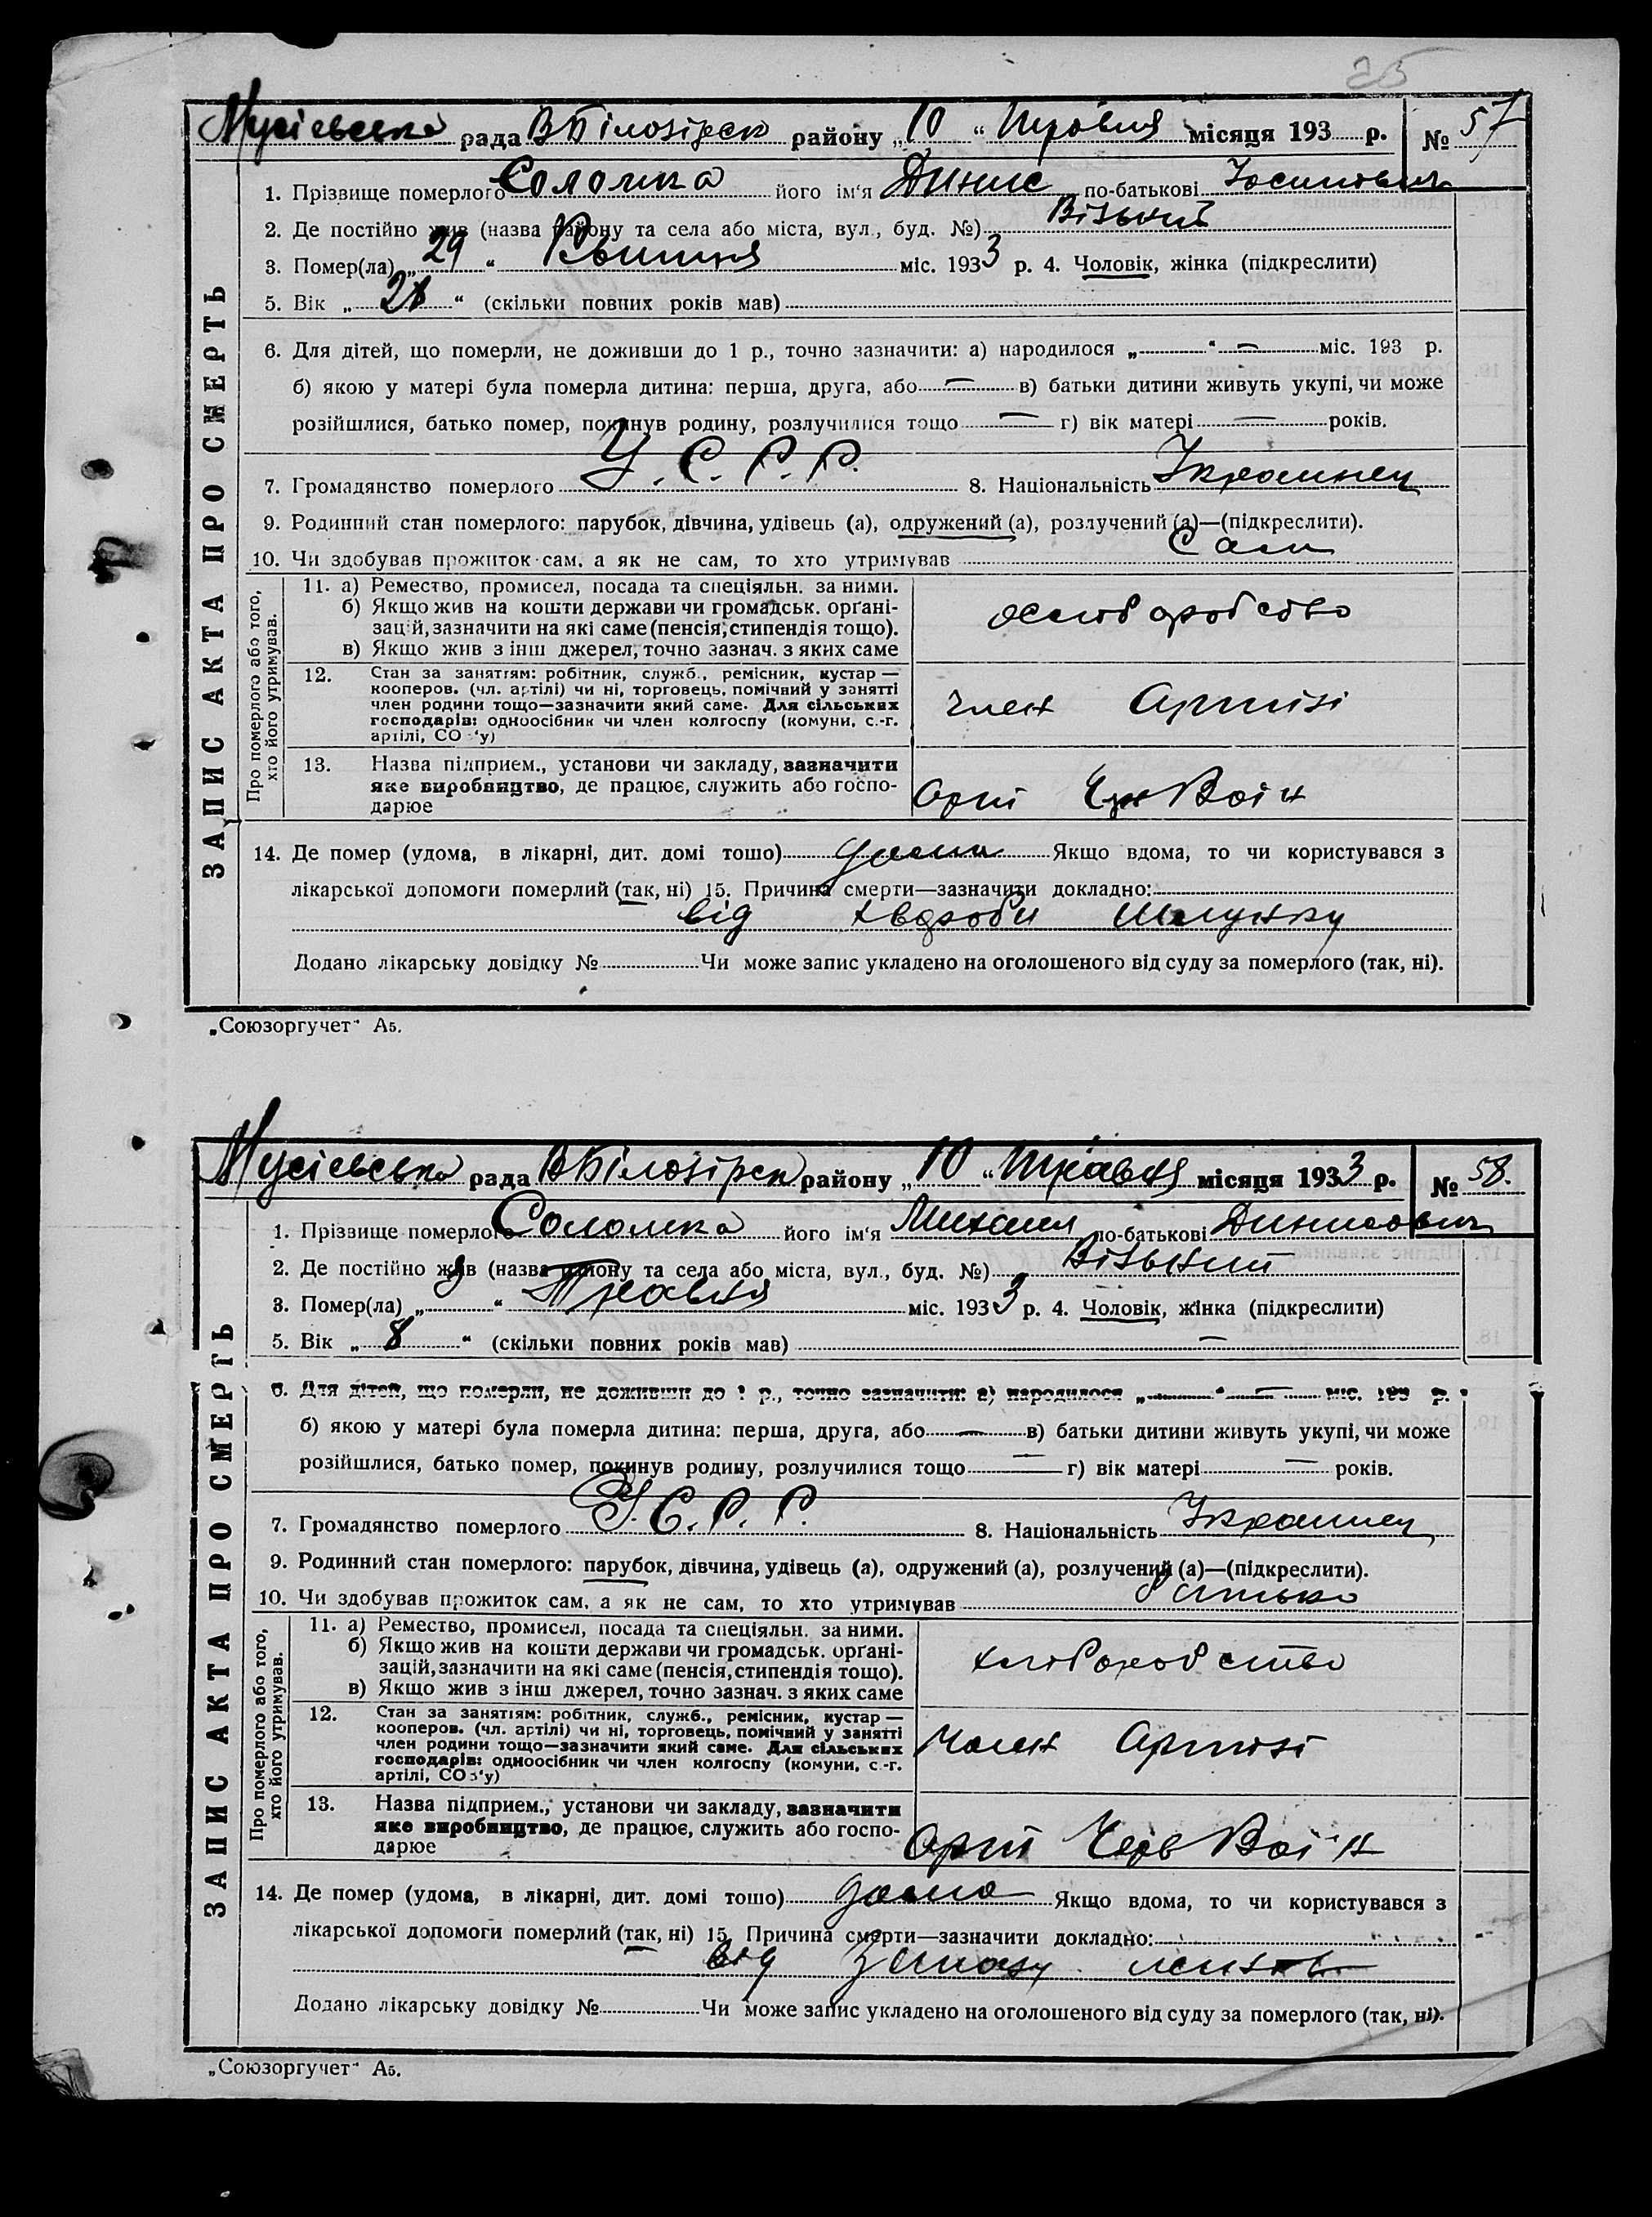 25
Мусієвська рада В Білозірск району „10“ Травня місяця 193 р. № 57
1. Прізвище померлого Соломка його ім'я Динис по-батькові Йосипович
2. Де постійно жив (назва району та села або міста, вул., буд. №)
3. Помер(ла) „29“ Квитня міс. 1933 р. 4. Чоловік, жінка (підкреслити)
5. Вік „28“ (скільки повних років мав)
6. Для дітей, що померли, не доживши до 1 р., точно зазначити: а) народилося „ “ — міс. 193 р.
б) якою у матері була померла дитина: перша, друга, або — в) батьки дитини живуть укупі, чи може
розійшлися, батько помер, покинув родину, розлучилися тощо — г) вік матері — років.
7. Громадянство померлого У.С.Р.Р. 8. Національність Украинец
9. Родинний стан померлого: парубок, дівчина, удівець (а), одружений (а), розлучений (а)—(підкреслити).
10. Чи здобував прожиток сам, а як не сам, то хто утримував Сам
ЗАПИС АКТА ПРО СМЕРТЬ
Про померлого або того,
хто його утримував.
11. а) Ремество, промисел, посада та спеціяльн. за ними.
б) Якщо жив на кошти держави чи громадськ. органі-
зацій, зазначити на які саме (пенсія, стипендія тощо).
в) Якщо жив з інш джерел, точно зазнач. з яких саме
хліборобство
12. Стан за заняттям: робітник, служб., ремісник, кустар —
кооперов. (чл. артілі) чи ні, торговець, помічний у занятті
член родини тощо—зазначити який саме. Для сільських
господарів: одноосібник чи член колгоспу (комуни, с.-г.
артілі, СО 'у)
член Артілі
13. Назва підприєм., установи чи закладу, зазначити
яке виробництво, де працює, служить або госпо-
дарює
Арт Чер Воін
14. Де помер (удома, в лікарні, дит. домі тошо) дома Якщо вдома, то чи користувався з
лікарської допомоги померлий (так, ні) 15. Причина смерти—зазначити докладно:
від хвороби Шлунку
Додано лікарську довідку № Чи може запис укладено на оголошеного від суду за померлого (так, ні).
„Союзоргучет“ А5.
Мусієвська рада В Білозірск району „10“ Травня місяця 1933 р. № 58.
1. Прізвище померлого Соломка його ім'я Михаил по-батькові Динисович
2. Де постійно жив (назва району та села або міста, вул., буд. №)
3. Помер(ла) „9“ Травня міс. 1933 р. 4. Чоловік, жінка (підкреслити)
5. Вік „8“ (скільки повних років мав) —
6. Для дітей, що померли, не доживши до 1 р., точно зазначити: а) народилося „ “ — міс. 193 р.
б) якою у матері була померла дитина: перша, друга, або — в) батьки дитини живуть укупі, чи може
розійшлися, батько помер, покинув родину, розлучилися тощо — г) вік матері — років.
7. Громадянство померлого У.С.Р.Р. 8. Національність Украинец
9. Родинний стан померлого: парубок, дівчина, удівець (а), одружений (а), розлучений (а)—(підкреслити).
10. Чи здобував прожиток сам, а як не сам, то хто утримував
ЗАПИС АКТА ПРО СМЕРТЬ
Про померлого або того,
хто його утримував.
11. а) Ремество, промисел, посада та спеціяльн. за ними.
б) Якщо жив на кошти держави чи громадськ. органі-
зацій, зазначити на які саме (пенсія, стипендія тощо).
в) Якщо жив з інш джерел, точно зазнач. з яких саме
хлібороб ство
12. Стан за заняттям: робітник, служб., ремісник, кустар —
кооперов. (чл. артілі) чи ні, торговець, помічний у занятті
член родини тощо—зазначити який саме. Для сільських
господарів: одноосібник чи член колгоспу (комуни, с.-г.
артілі, СОз'у)
Член Артілі
13. Назва підприєм., установи чи закладу, зазначити
яке виробництво, де працює, служить або госпо-
дарює
Арт Черв Воін
14. Де помер (удома, в лікарні, дит. домі тошо) дома Якщо вдома, то чи користувався з
лікарської допомоги померлий (так, ні) 15. Причина смерти—зазначити докладно:
від
Додано лікарську довідку № Чи може запис укладено на оголошеного від суду за померлого (так, ні).
„Союзоргучет“ А5.